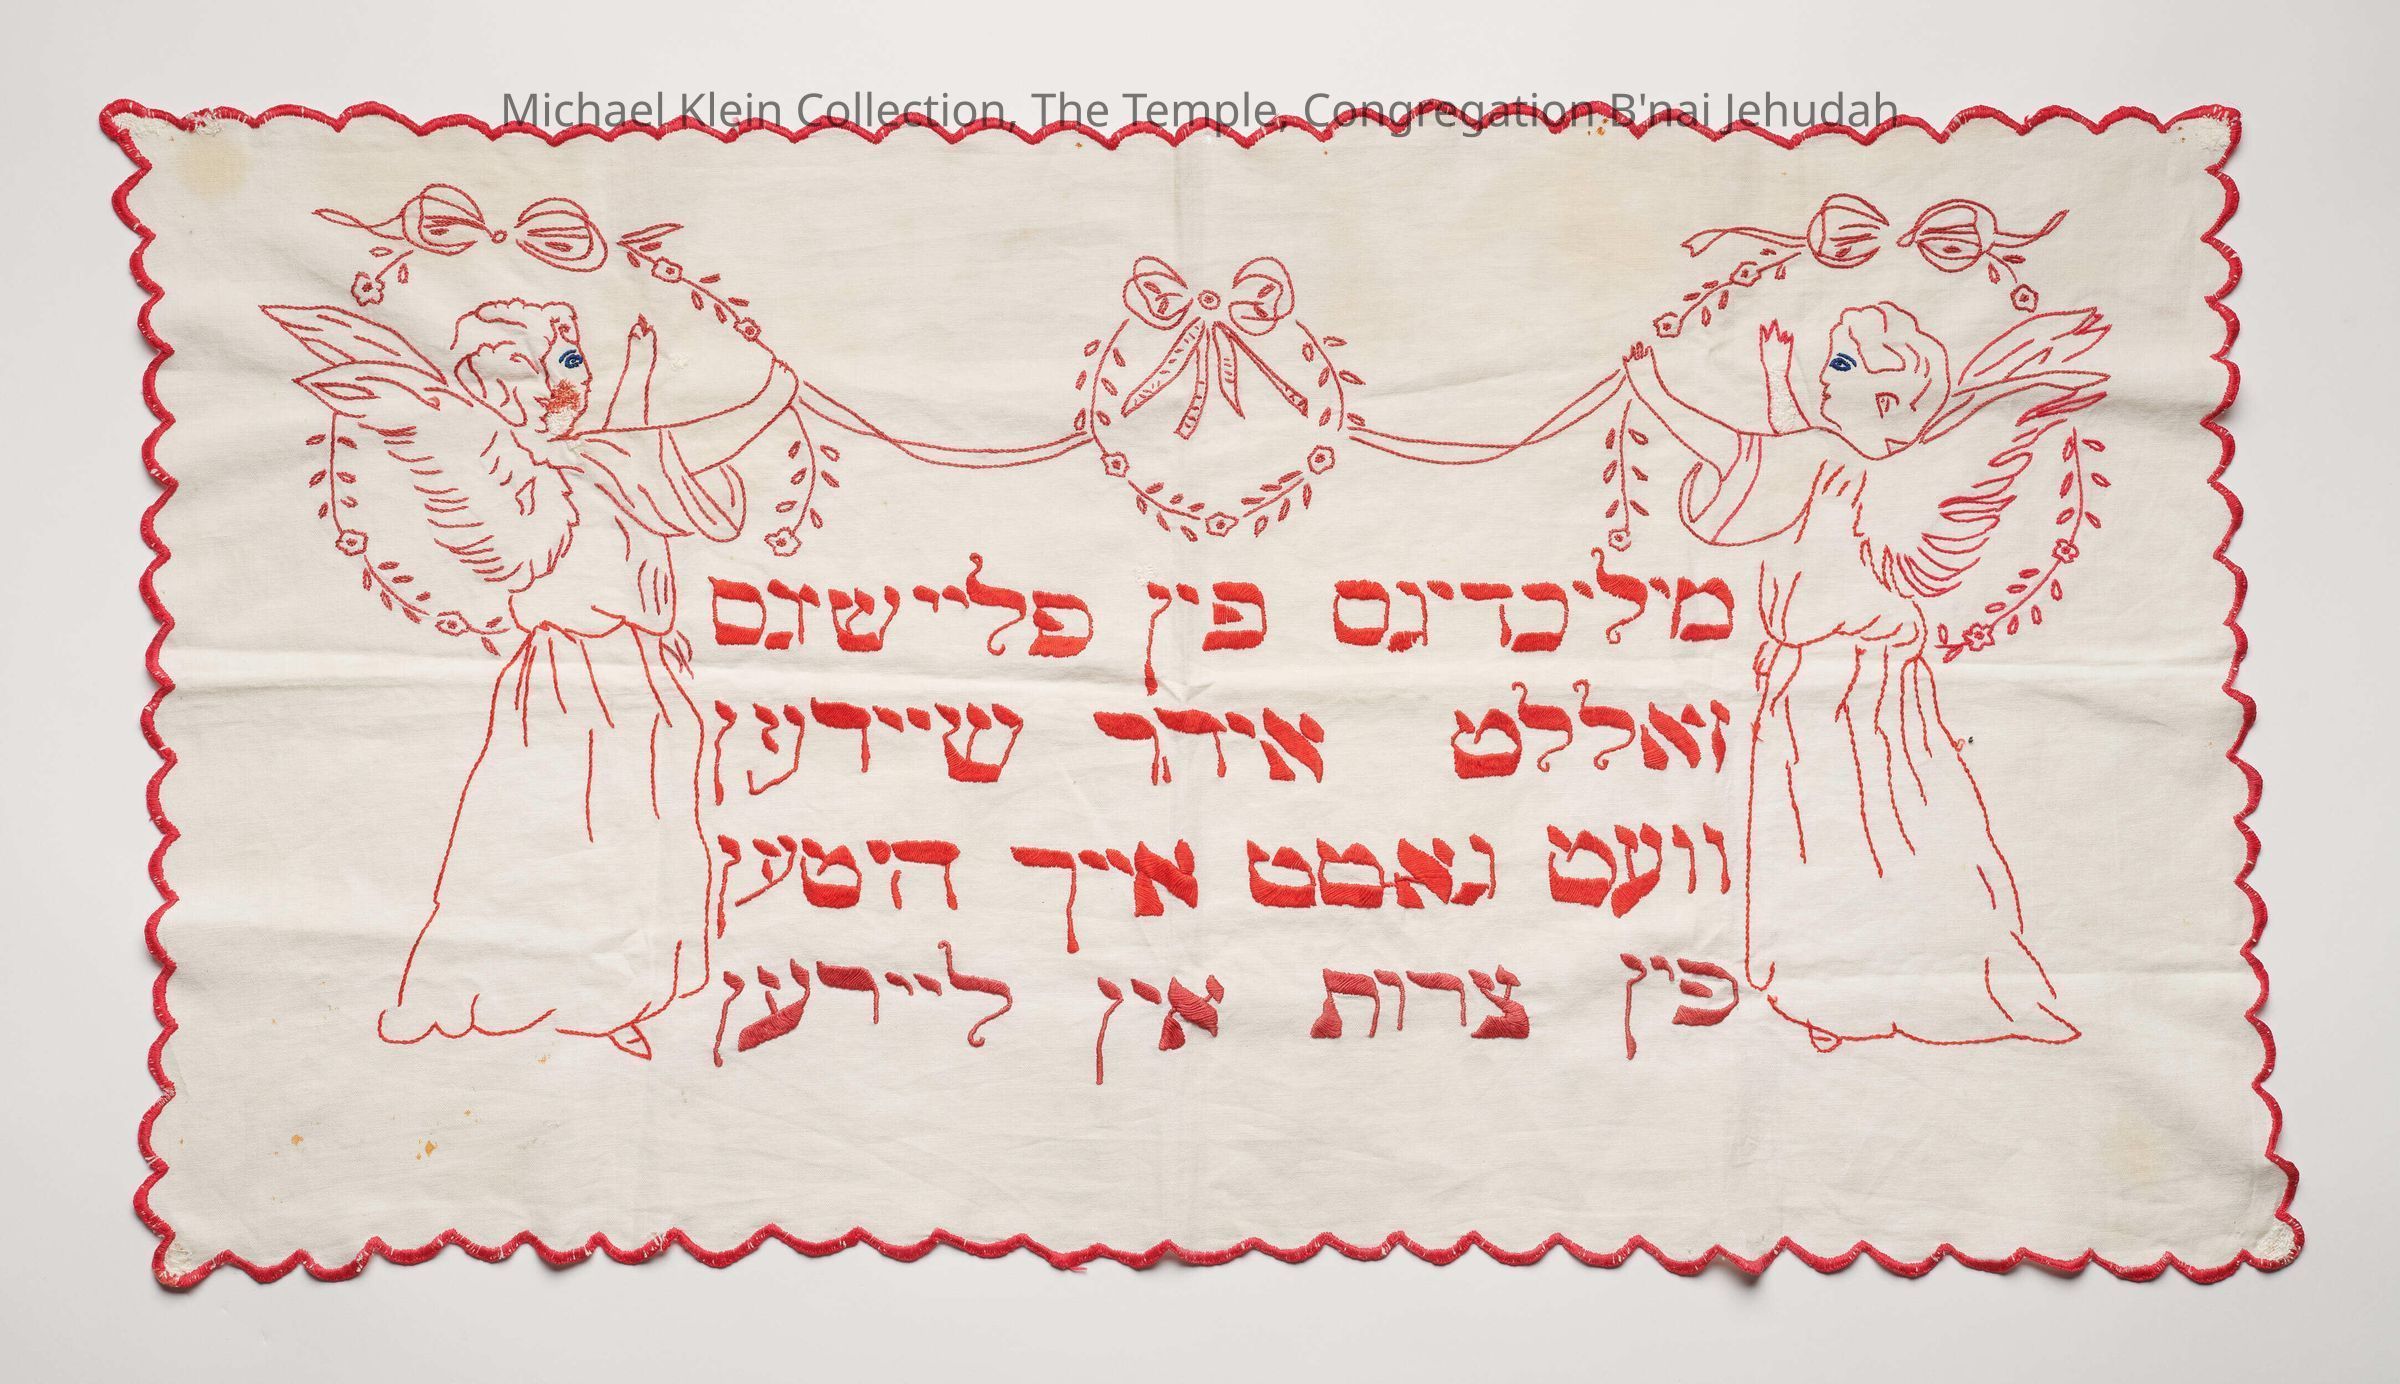 Michael Klein Collection, The Temple, Congregation B'nai Jehudah
מיליכדיגס פין פליישיגס
זאללט אידר שיידען
וועט גאטט אייך היטען
פין צרות אין ליידען